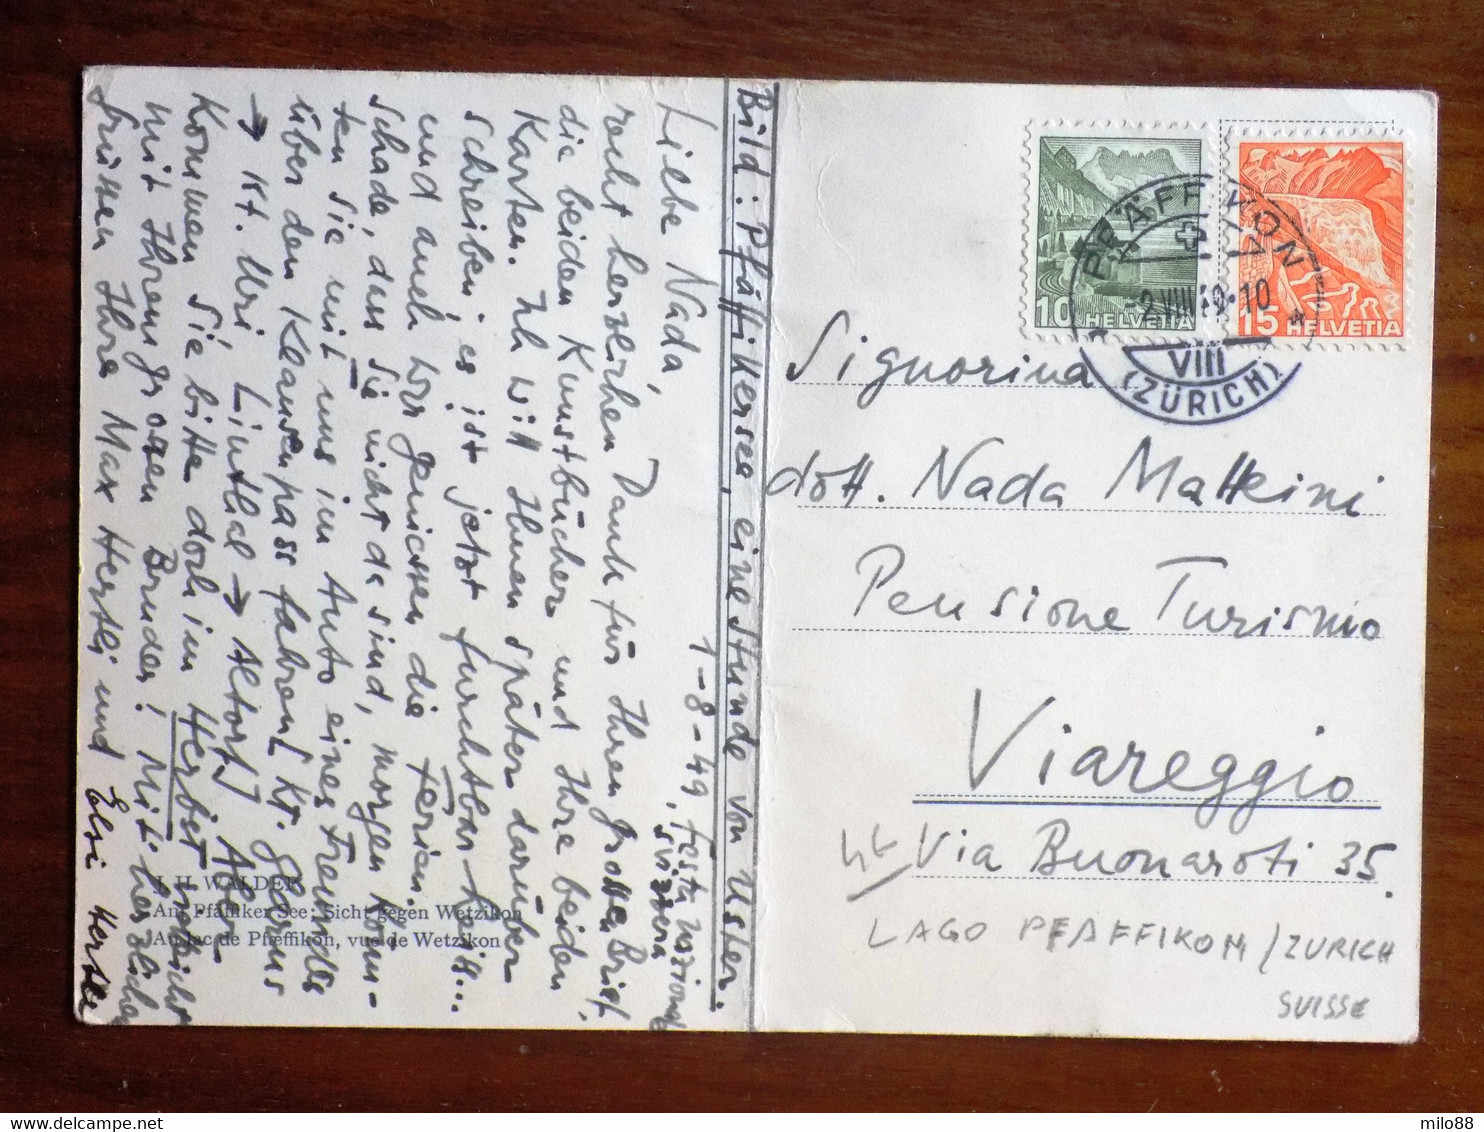 Bild: Pfäffikersee, eine Stunde von Uster.
1-8-49, festa nazionale
svizzera
Liebe Nada,
recht herzlichen Dank für Ihren grossen Brief,
die beiden Kunstbücher und Ihre beiden
Karten. Ich will Ihnen später darüber
schreiben, es ist jetzt furchtbar heiss...
und auch wir geniessen die Ferien.
Schade, dass Sie nicht da sind, morgen könn-
ten Sie mit uns im Auto eines Freundes
über den Klausenpass fahren [Kt. Glarus
→ Kt. Uri, Linthal → Altorf] Aber
Kommen Sie bitte doch im Herbst vielleicht
mit Ihrem grossen Bruder! Mit herzlichen
Grüssen Ihre Max Hertli und Elsi Hertli
J. H. WALDER
Am Pfäffiker See: Sicht gegen Wetzikon
Au lac de Pfæffikon, vue de Wetzikon
10 HELVETIA
15 HELVETIA
PFÄFFIKON
-2.VIII.49.-10
VIII
(ZÜRICH)
Signorina
dott. Nada Matteini
Pensione Turismo
Viareggio
Via Buonaroti 35.
LAGO PFAFFIKON / ZURICH
SUISSE
milo88